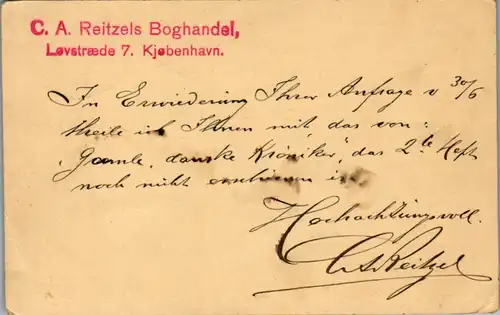 C. A. Reitzels Boghandel,
Løvstræde 7. Kjøbenhavn.
In Erwiederung Ihrer Anfrage v 30/6
theile ich Ihnen mit, das von:
"Gamle danske Krøniker", das 2te Heft
noch nicht erschienen ist.
Hochachtungsvoll.
C. A. Reitzel